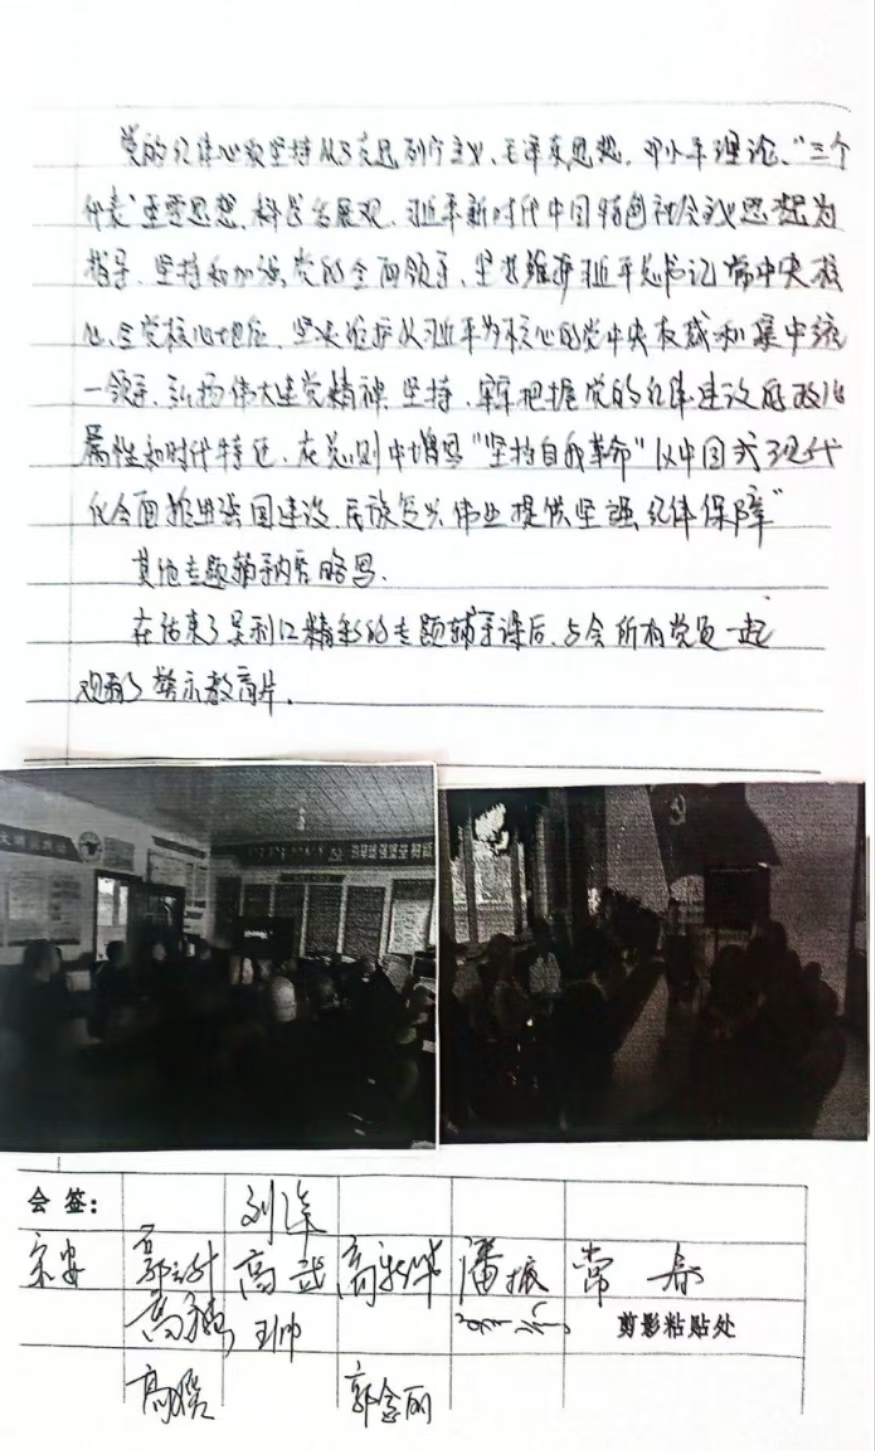 党的纪律必须坚持马克思列宁主义、毛泽东思想、邓小平理论、“三个
代表”重要思想、科学发展观、习近平新时代中国特色社会主义思想为
指导、坚持和加强党的全面领导、坚决维护习近平总书记党中央核
心、全党核心地位、坚决维护以习近平为核心的党中央权威和集中统
一领导、弘扬伟大建党精神、坚持、牢牢把握党的纪律建设的政治
属性和时代特征、在总则中增写“坚持自我革命”“以中国式现代
化全面推进强国建设、民族复兴伟业提供坚强纪律保障”
其他专题辅导内容略写.
在结束了精彩的专题辅导课后、与会所有党员一起
观看了警示教育片.
会 签:
高武 潘振 常春
王帅 剪影粘贴处